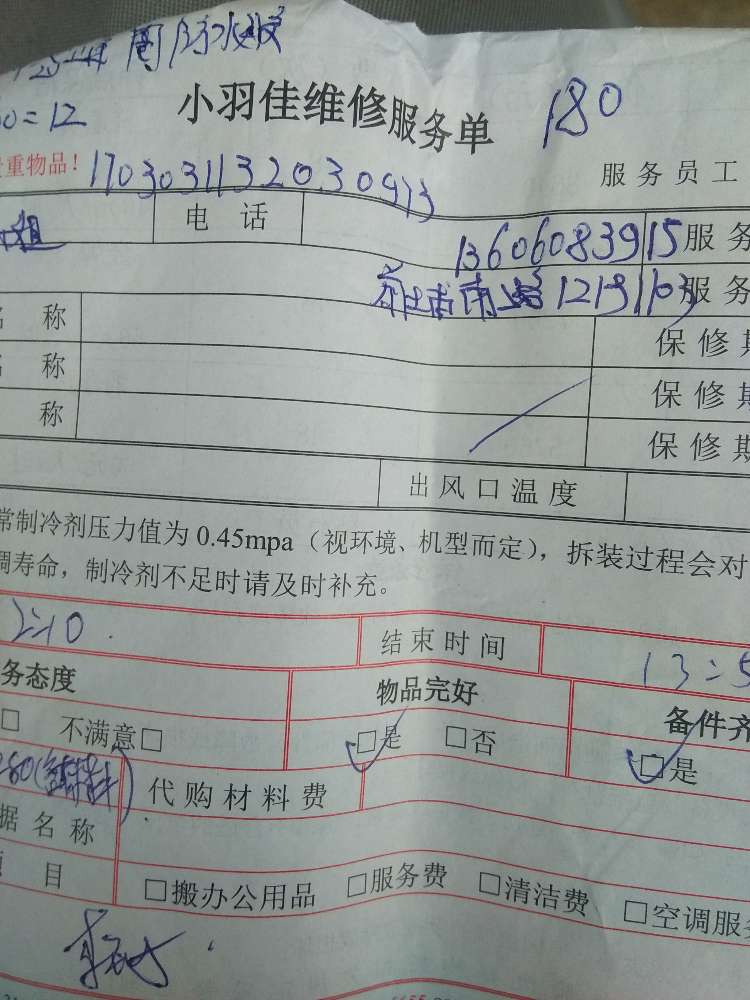 小羽佳维修服务单 180
0=12
重物品！
服务员工
电话 13606083915 服务
1219 1103 服务
名称 保修期
名称 保修期
称 保修期
出风口温度
常制冷剂压力值为0.45mpa（视环境、机型而定），拆装过程会对
调寿命，制冷剂不足时请及时补充。
12:10 结束时间 13:5
务态度 物品完好 备件齐
□ 不满意□ □是 □否 □是
代购材料费
据名称
项目 □搬办公用品 □服务费 □清洁费 □空调服务